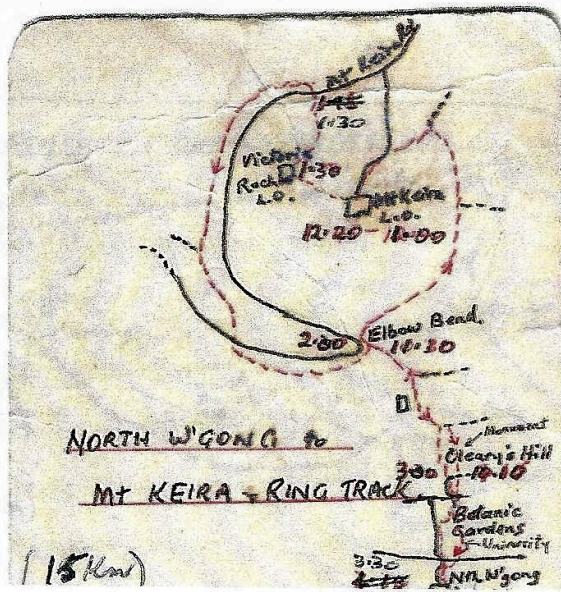 Mt Keira Rd
1.45
1.30
Victoria
Rock
L.O.
1.30
Mt Keira
L.O.
12.20
Elbow Bend.
2.00
11.30
Monument
Cleary's Hill
3.00
10.10
NORTH W'GONG to
Mt KEIRA - RING TRACK
Botanic
Gardens
University
3.30
Nth W'gong
(15 Km)